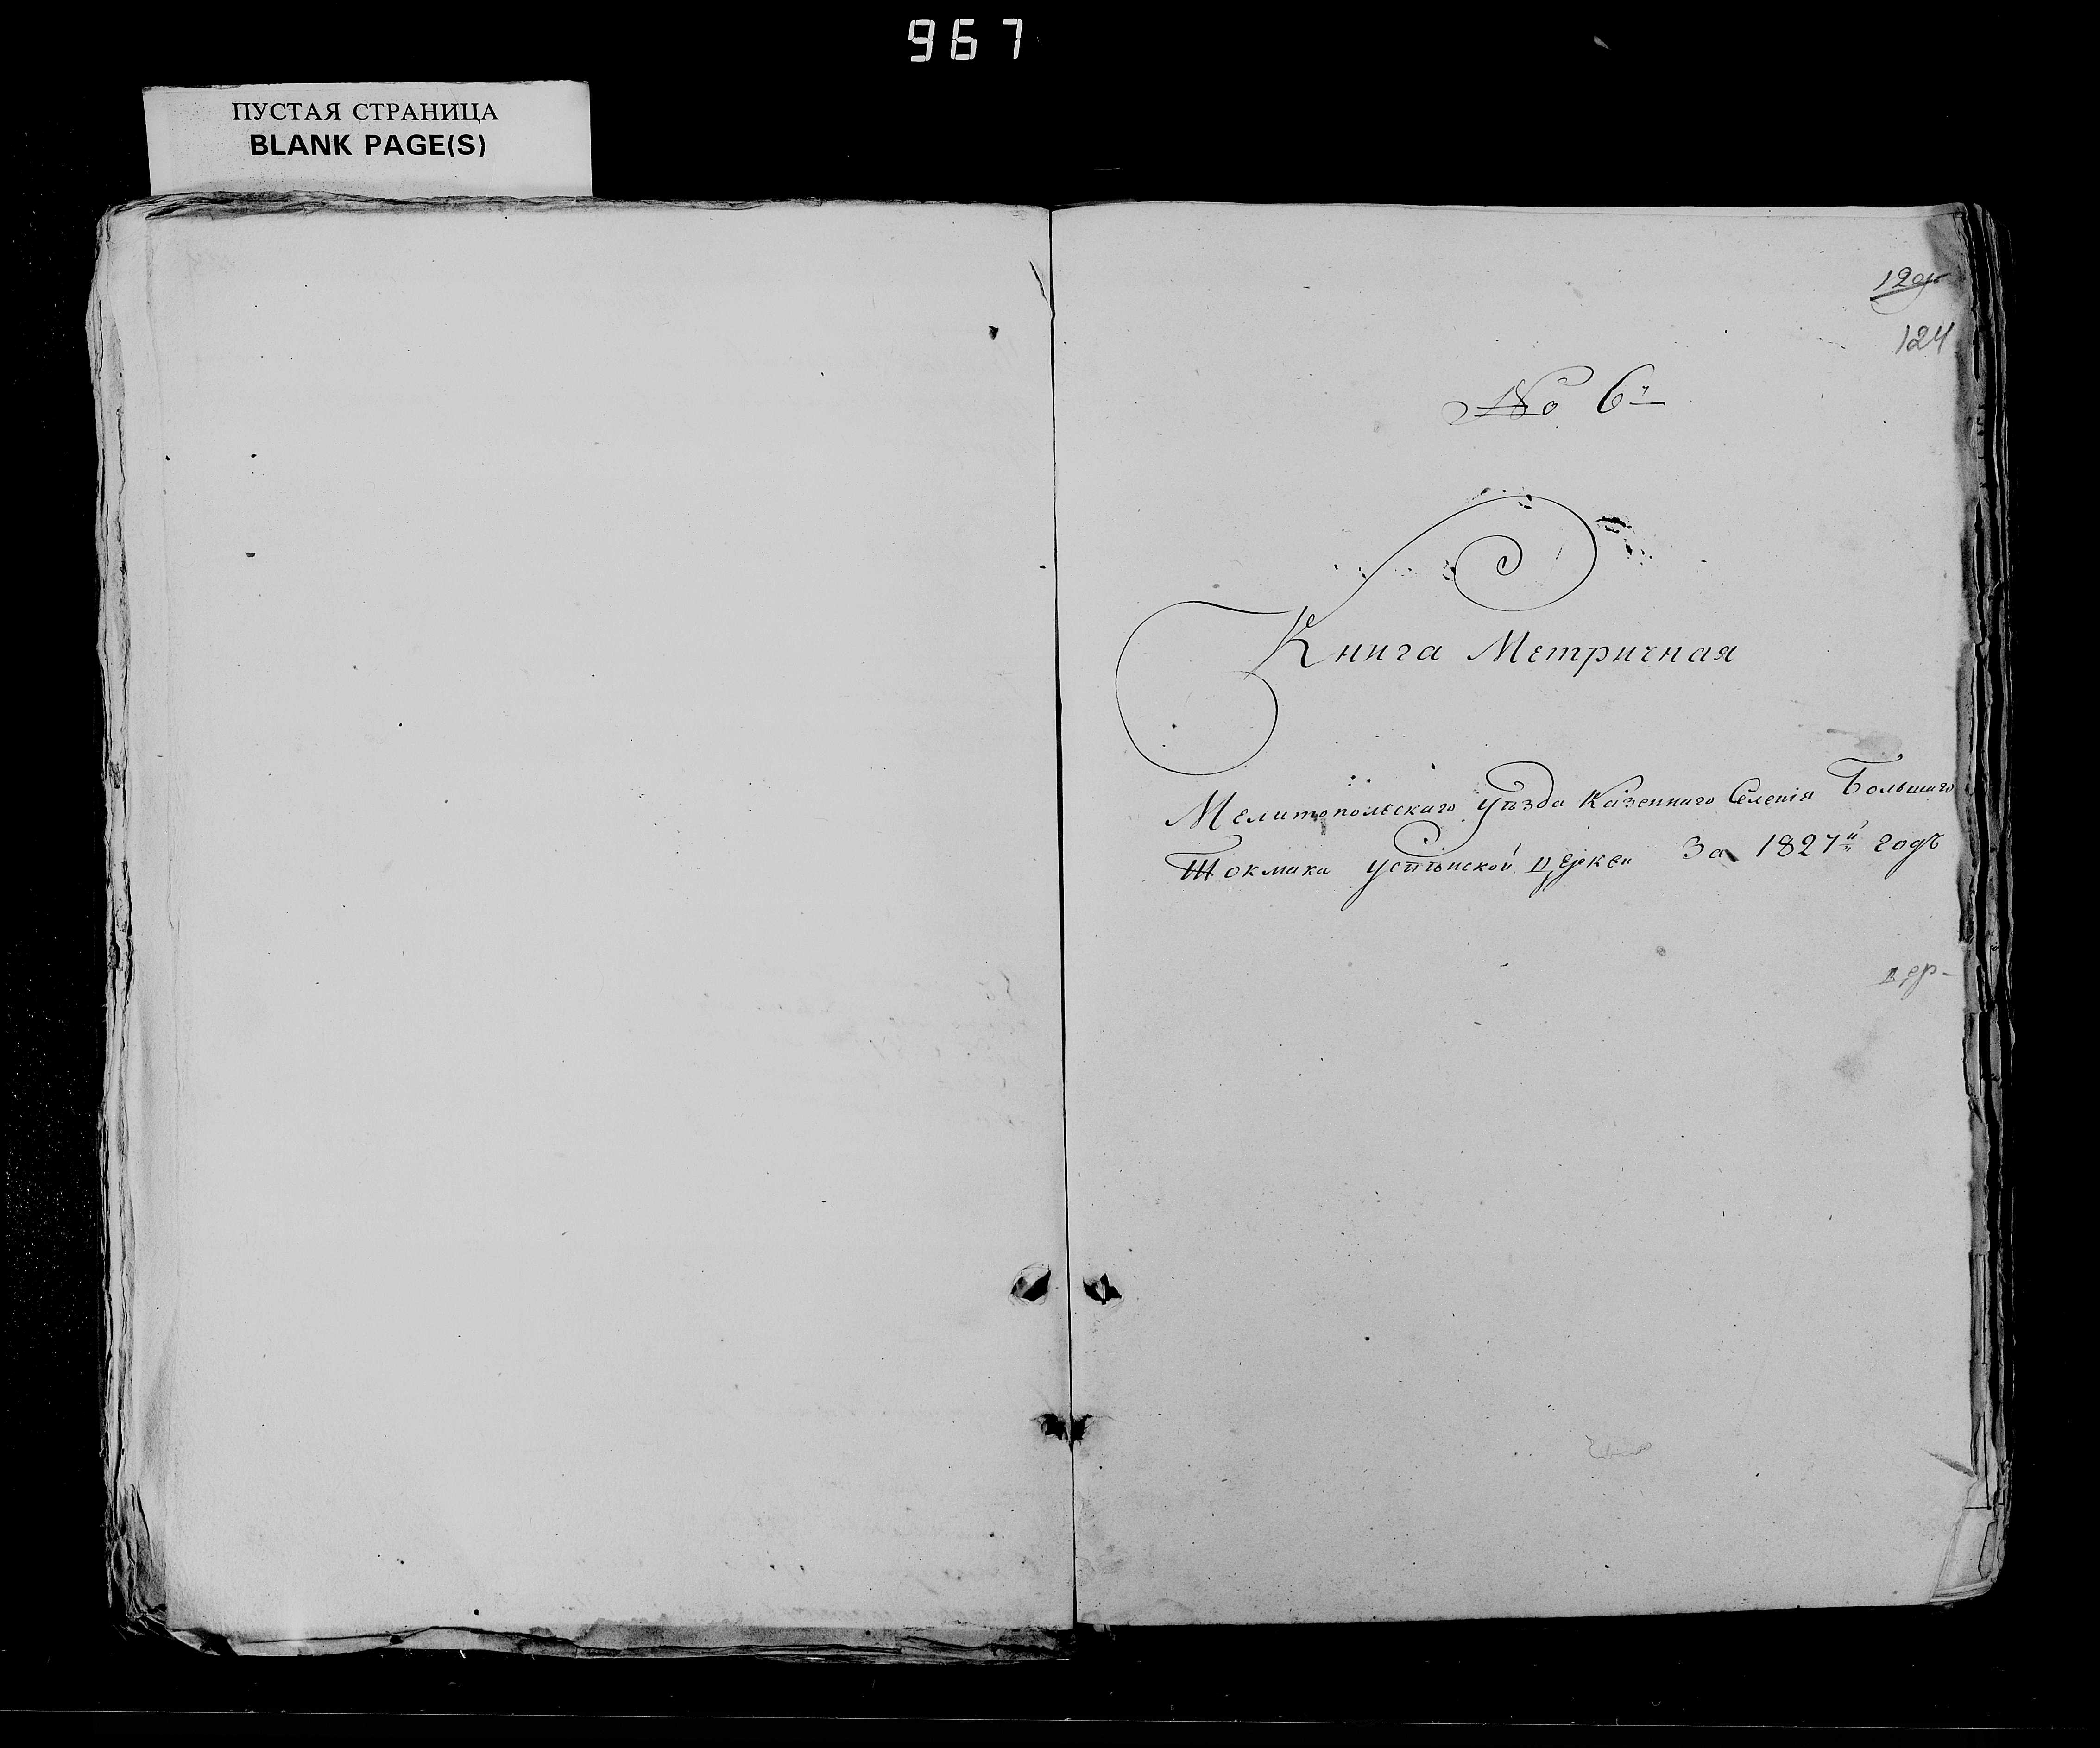 967
ПУСТАЯ СТРАНИЦА
BLANK PAGE(S)
124
No 6й
Книга Метричная
Мелитопольскаго уѣзда Казеннаго Селенія Большаго
Токмака Успѣнской церкви За 1827й годъ
цер-